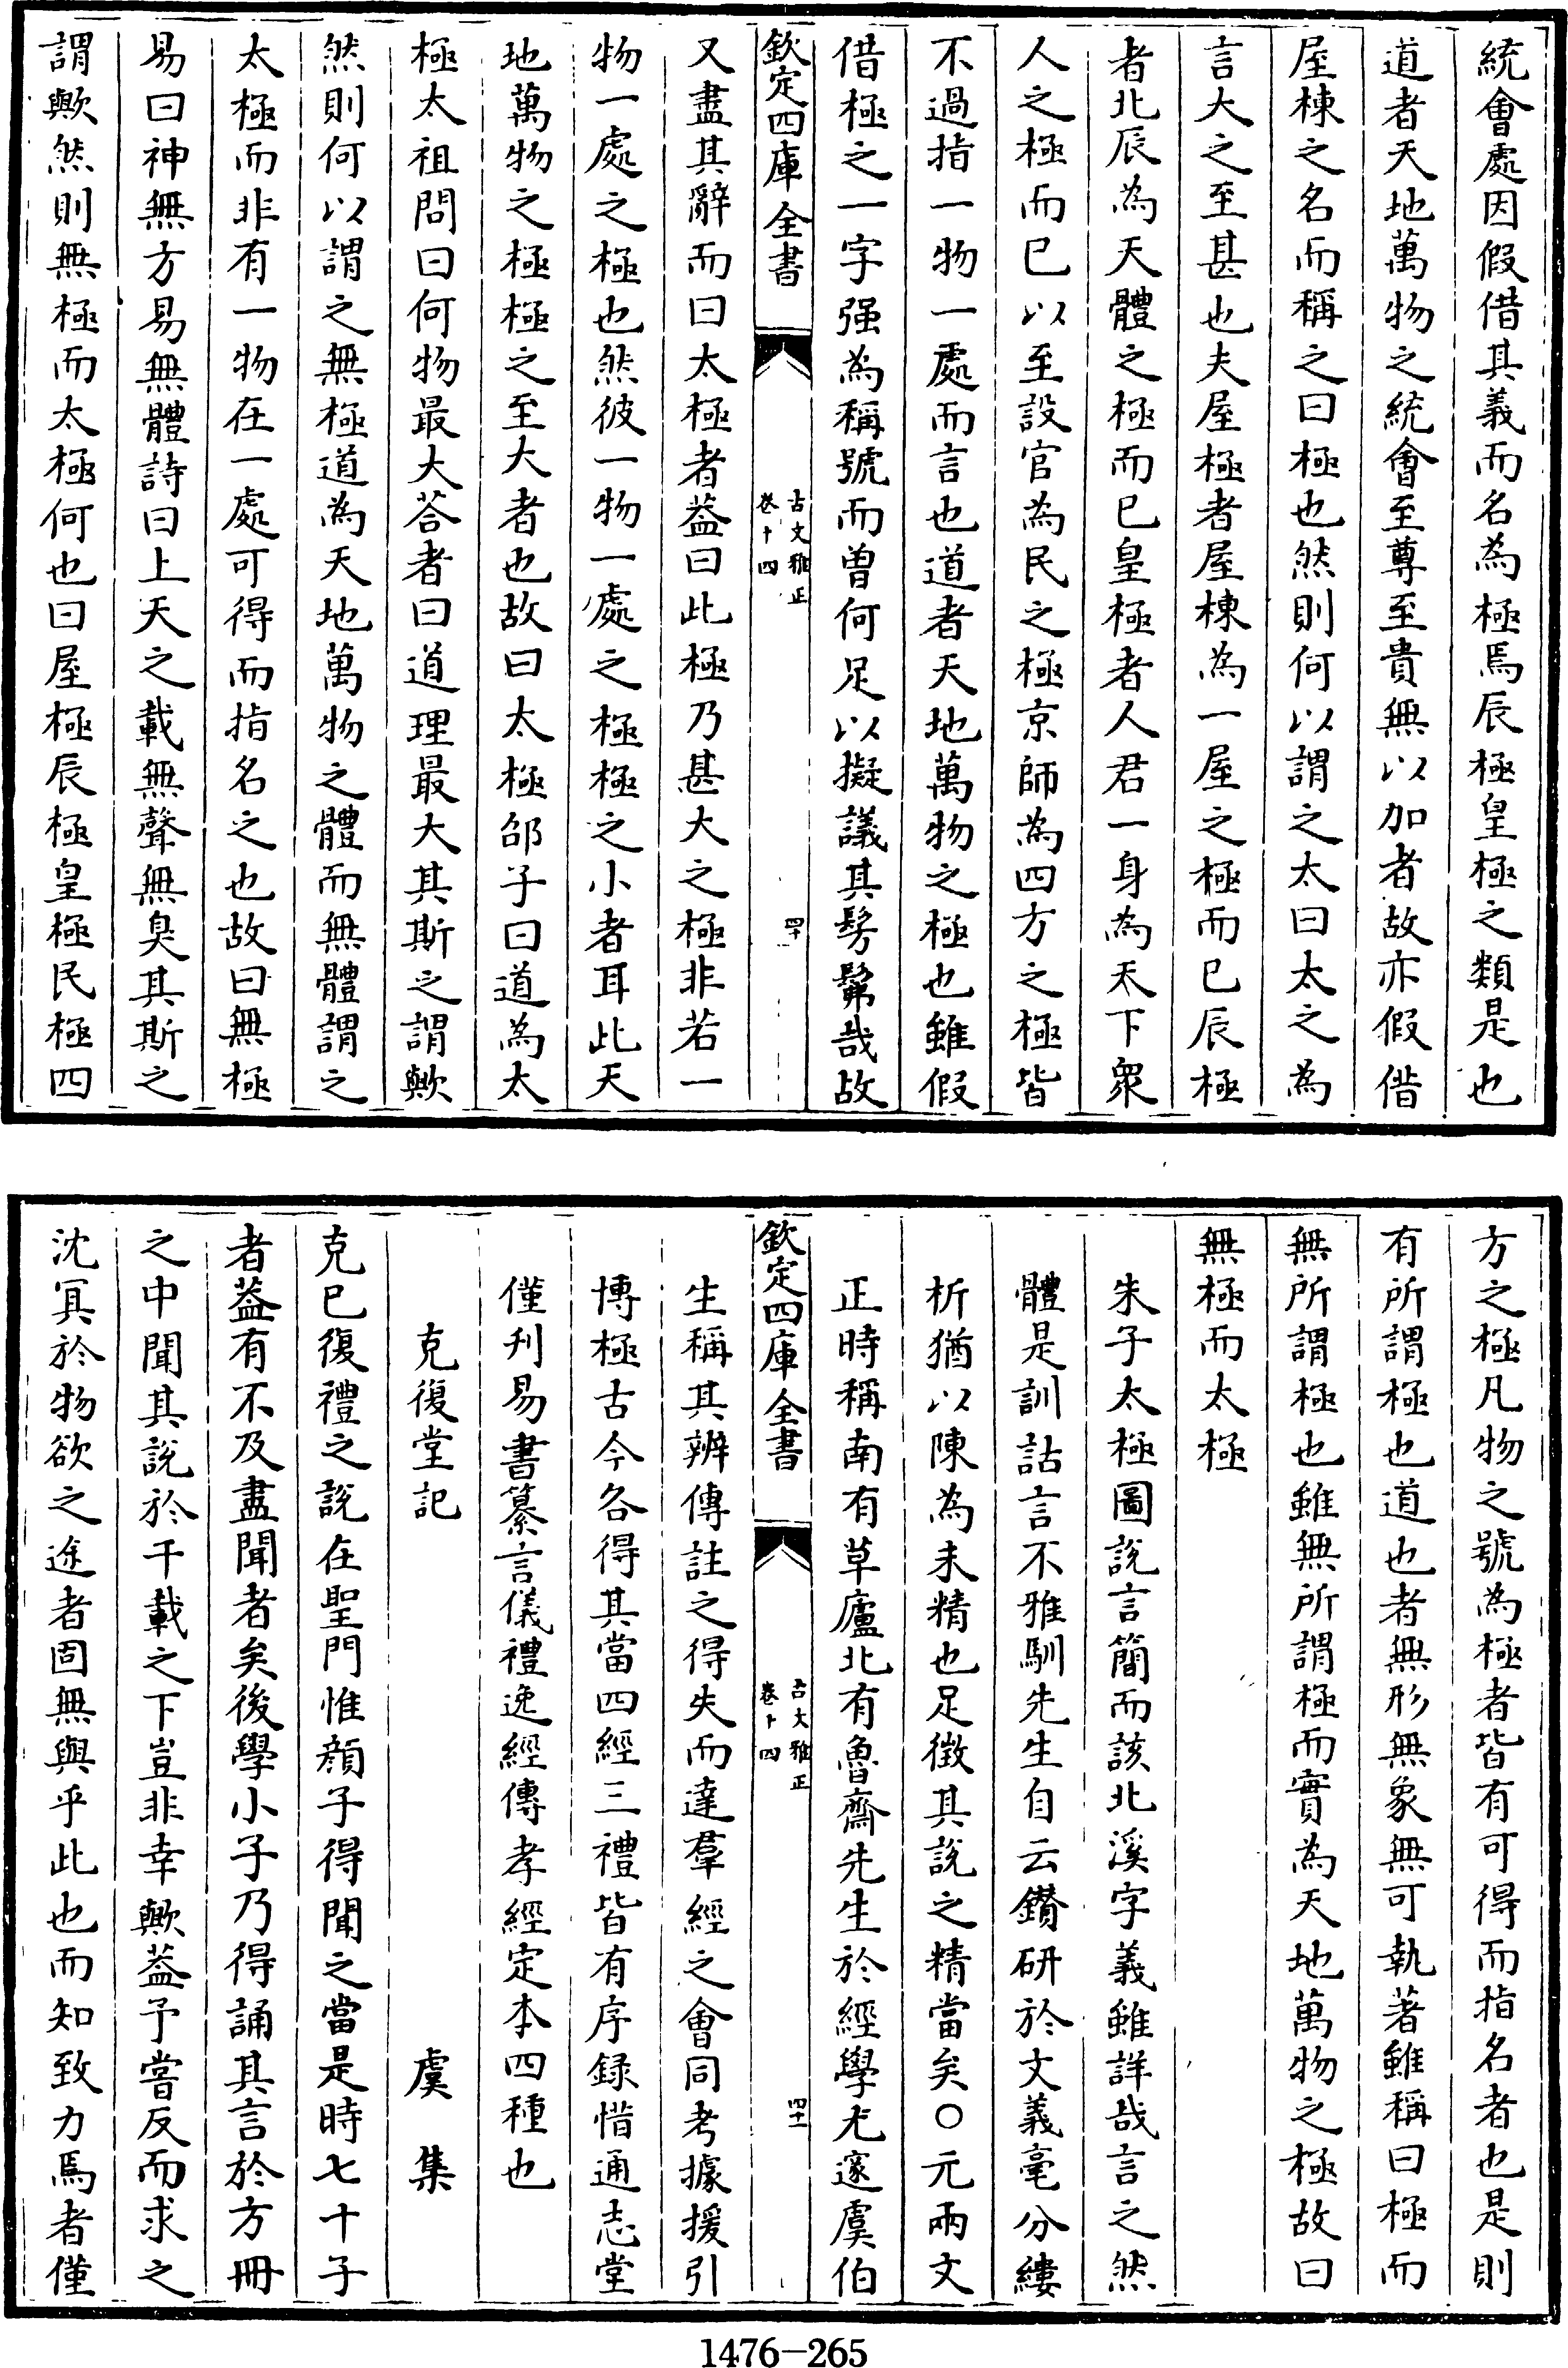 統會處因假借其義而名為極焉辰極皇極之類是也
道者天地萬物之統會至尊至貴無以加者故亦假借
屋棟之名而稱之曰極也然則何以謂之太曰太之為
言大之至甚也夫屋極者屋棟為一屋之極而已辰極
者北辰為天體之極而已皇極者人君一身為天下衆
人之極而已以至設官為民之極京師為四方之極皆
不過指一物一處而言也道者天地萬物之極也雖假
借極之一字强為稱號而曾何足以擬議其髣髴哉故
欽定四庫全書
古文雅正
卷十四
四十
又盡其辭而曰太極者葢曰此極乃甚大之極非若一
物一處之極也然彼一物一處之極極之小者耳此天
地萬物之極極之至大者也故曰太極邵子曰道為太
極太祖問曰何物最大荅者曰道理最大其斯之謂歟
然則何以謂之無極道為天地萬物之體而無體謂之
太極而非有一物在一處可得而指名之也故曰無極
易曰神無方易無體詩曰上天之載無聲無臭其斯之
謂歟然則無極而太極何也曰屋極辰極皇極民極四
方之極凡物之號為極者皆有可得而指名者也是則
有所謂極也道也者無形無象無可執著雖稱曰極而
無所謂極也雖無所謂極而實為天地萬物之極故曰
無極而太極
朱子太極圖說言簡而該北溪字義雖詳哉言之然
體是訓詁言不雅馴先生自云鑚研於文義毫分縷
析猶以陳為未精也足徵其說之精當矣○元兩文
正時稱南有草廬北有魯齋先生於經學尤邃虞伯
欽定四庫全書
古文雅正
卷十四
四十一
生稱其辨傳註之得失而達羣經之會同考據援引
博極古今各得其當四經三禮皆有序録惜通志堂
僅刋易書纂言儀禮逸經傳孝經定本四種也
克復堂記
虞集
克已復禮之說在聖門惟顔子得聞之當是時七十子
者葢有不及盡聞者矣後學小子乃得誦其言於方冊
之中聞其說於千載之下豈非幸歟葢予嘗反而求之
沈冥於物欲之途者固無與乎此也而知致力焉者僅
1476-265